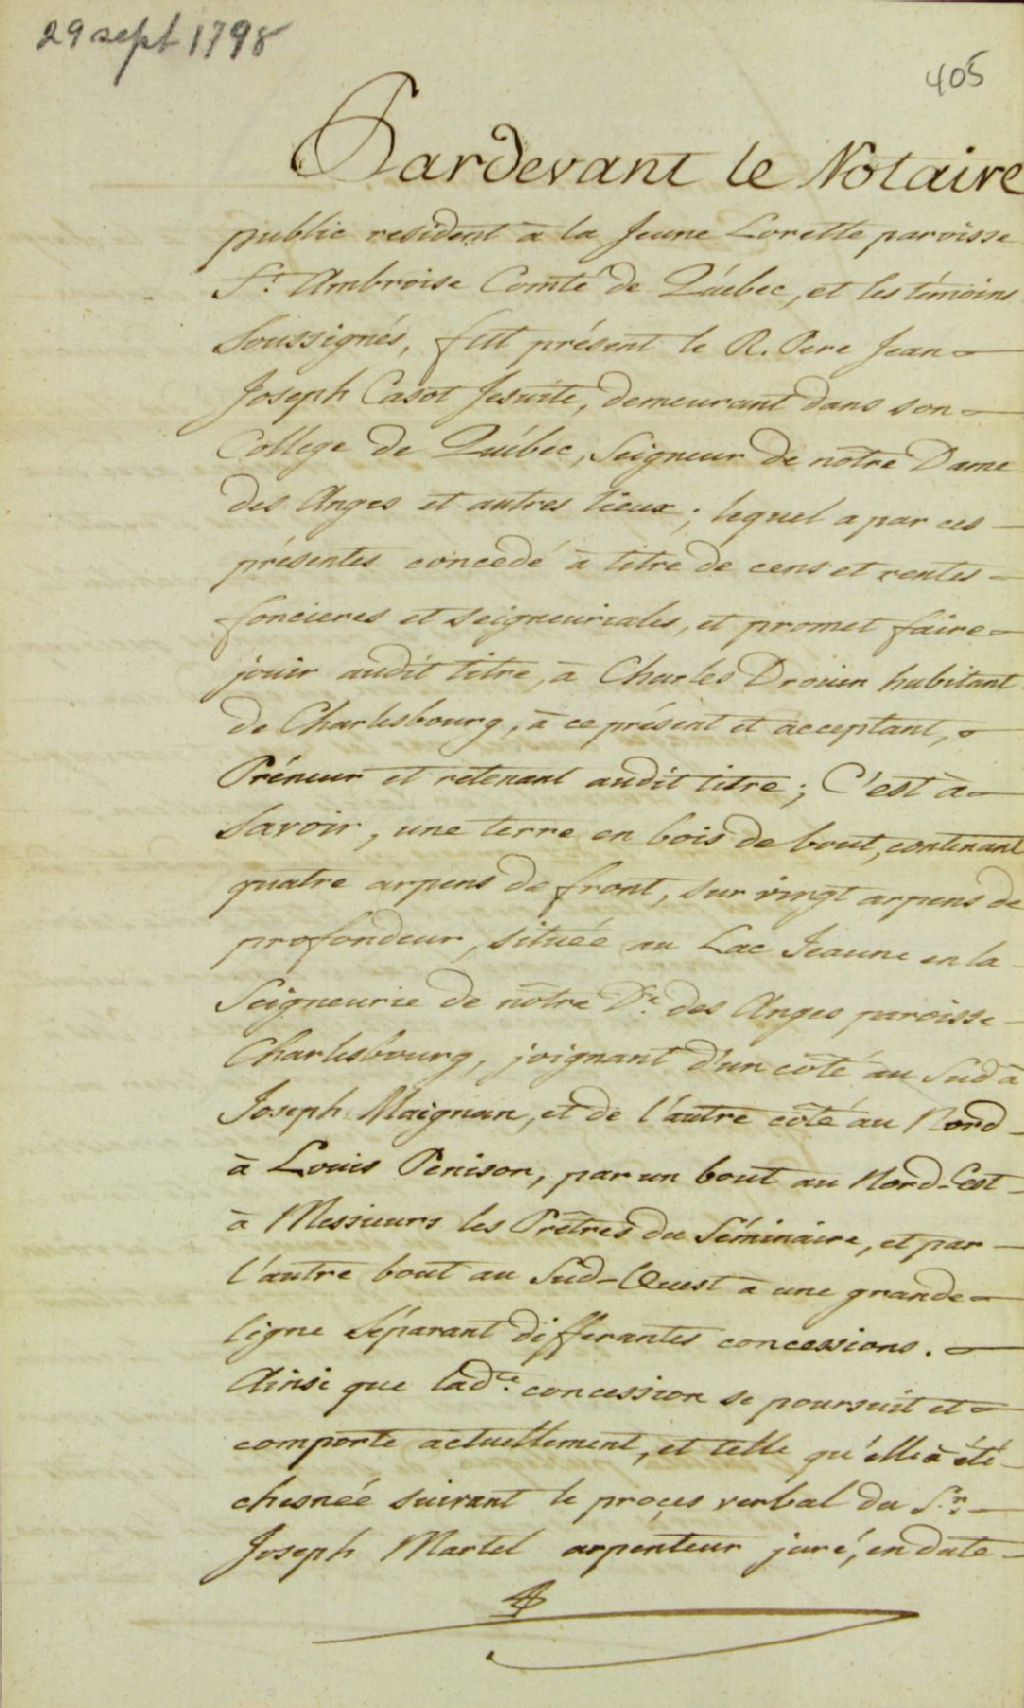 29 sept 1798
405
Pardevant le Notaire
public resident à la Jeune Lorette paroisse
St. Ambroise Comté de Québec, et les témoins
Soussignés, fût présent le R. Pere Jean
Joseph Casot Jesuite, demeurant dans son
College de Québec, Seigneur de nôtre Dame
des Anges et autres lieux; lequel a par ces
présentes concedé à titre de cens et rentes
foncieres et seigneuriales, et promet faire
jouir audit titre, à Charles Drouin habitant
de Charlesbourg, à ce présent et acceptant,
Préneur et retenant audit titre; C'est à
Savoir, une terre en bois de bout, contenant
quatre arpens de front, sur vingt arpens de
profondeur, située au Lac Jeaune en la
Seigneurie de nôtre De. des Anges paroisse
Charlesbourg, joignant d'un côté au Sud à
Joseph Maignan, et de l'autre côté au Nord
à Louis Penison, par un bout au Nord-Est
à Messieurs les Prêtres du Séminaire, et par
l'autre bout au Sud-Ouest à une grande
ligne Séparant differantes concessions.
Ainsi que ladce. concession se poursuit et
comporte actuellement, et telle qu'elle à été
chesnée suivant le proçes verbal du Sr.
Joseph Martel arpenteur juré, en date